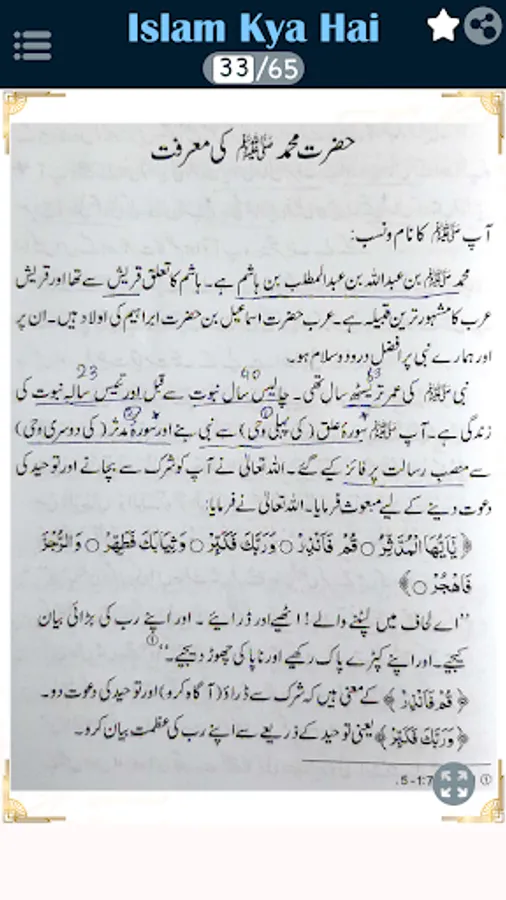 Islam Kya Hai
33/65
حضرت محمد ﷺ کی معرفت
آپ ﷺ کا نام و نسب:
محمد ﷺ بن عبداللہ بن عبدالمطلب بن ہاشم ہے۔ ہاشم کا تعلق قریش سے تھا اور قریش
عرب کا مشہور ترین قبیلہ ہے۔ عرب حضرت اسماعیل بن حضرت ابراہیم کی اولاد ہیں۔ ان پر
اور ہمارے نبی پر افضل درود و سلام ہو۔
23 40 63
نبی ﷺ کی عمر تریسٹھ سال تھی۔ چالیس سال نبوت سے قبل اور تئیس سالہ نبوت کی
زندگی ہے۔ آپ ﷺ سورۂ علق (کی پہلی وحی) سے نبی بنے اور سورۂ مدثر (کی دوسری وحی)
سے منصب رسالت پر فائز کیے گئے۔ اللہ تعالیٰ نے آپ کو شرک سے بچانے اور توحید کی
دعوت دینے کے لیے مبعوث فرمایا۔ اللہ تعالیٰ نے فرمایا:
﴿يٰٓاَيُّهَا الْمُدَّثِّرُ ○ قُمْ فَاَنْذِرْ ○ وَرَبَّكَ فَكَبِّرْ ○ وَثِيَابَكَ فَطَهِّرْ ○ وَالرُّجْزَ
فَاهْجُرْ ○﴾
”اے لحاف میں لپٹنے والے! اٹھیے اور ڈرائیے۔ اور اپنے رب کی بڑائی بیان
کیجیے۔ اور اپنے کپڑے پاک رکھیے اور ناپاکی چھوڑ دیجیے۔“①
﴿قُمْ فَاَنْذِرْ﴾ کے معنی ہیں کہ شرک سے ڈراؤ (آگاہ کرو) اور توحید کی دعوت دو۔
﴿وَرَبَّكَ فَكَبِّرْ﴾ یعنی توحید کے ذریعے سے اپنے رب کی عظمت بیان کرو۔
① 5-1:7